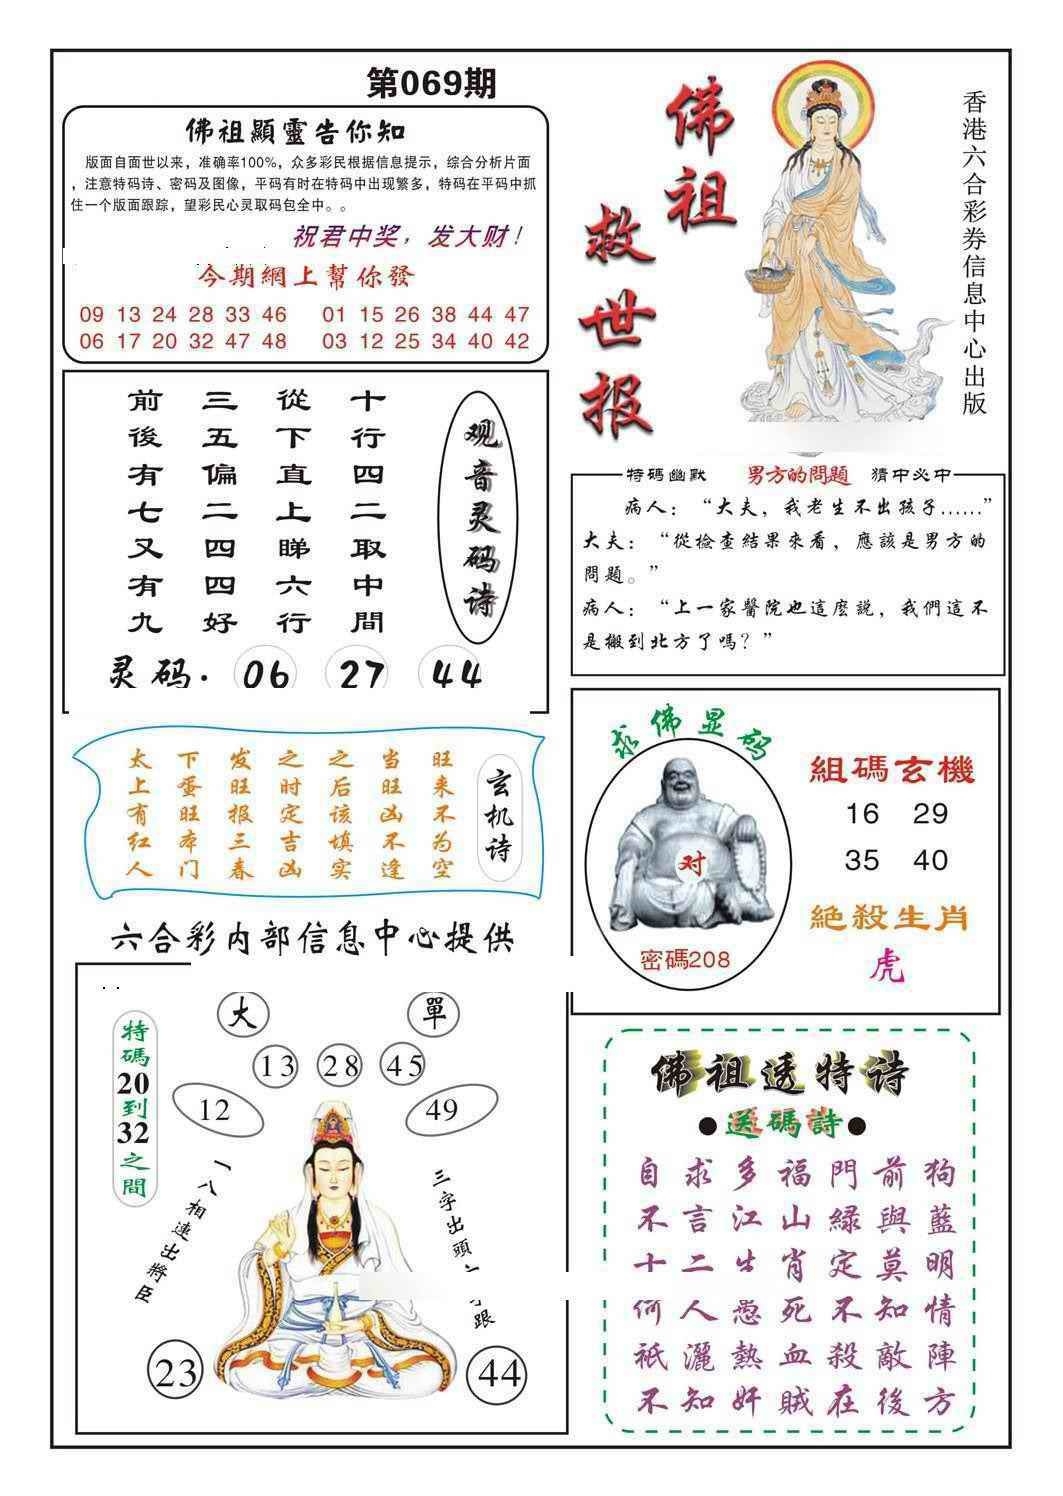 第069期
佛祖顯靈告你知
版面自面世以来，准确率100%，众多彩民根据信息提示，综合分析片面
，注意特码诗、密码及图像，平码有时在特码中出现繁多，特码在平码中抓
住一个版面跟踪，望彩民心灵取码包全中。。
祝君中奖，发大财！
今期網上幫你發
09 13 24 28 33 46 01 15 26 38 44 47
06 17 20 32 47 48 03 12 25 34 40 42
佛祖
救世报
香港六合彩券信息中心出版
观音灵码诗
十行四二取中間
從下直上睇六行
三五偏二四四好
前後有七又有九
灵码. 06 27 44
特碼幽默 男方的問題 猜中必中
病人：“大夫，我老生不出孩子……”
大夫：“從檢查結果來看，應該是男方的
問題。”
病人：“上一家醫院也這麼説，我們這不
是搬到北方了嗎？”
玄机诗
旺来不为空
当旺凶不逢
之后该填实
之时定吉凶
发旺报三春
下蛋旺本门
太上有红人
求佛显码
对
密碼208
組碼玄機
16 29
35 40
絕殺生肖
虎
六合彩内部信息中心提供
特碼20到32之間
大 單
13 28 45
12 49
一八相連出將臣
三字出頭
跟
23 44
佛祖透特诗
●送碼詩●
自求多福門前狗
不言江山綠與藍
十二生肖定莫明
何人愚死不知情
祇灑熱血殺敵陣
不知奸賊在後方